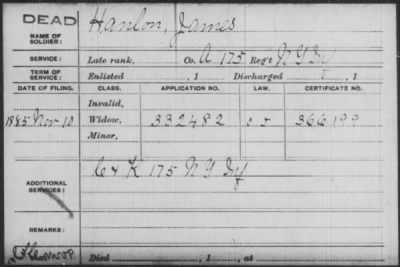 DEAD
NAME OF SOLDIER: Hanlon, James
SERVICE: Late rank, Co. A 175 Reg't N.Y. Inf
TERM OF SERVICE: Enlisted , 1 Discharged , 1
DATE OF FILING. CLASS. APPLICATION NO. LAW. CERTIFICATE NO.
Invalid,
1885 Nov 10 Widow, 332482 366199
Minor,
ADDITIONAL SERVICES: K 175 N Y Inf
REMARKS:
Died , 1 , at